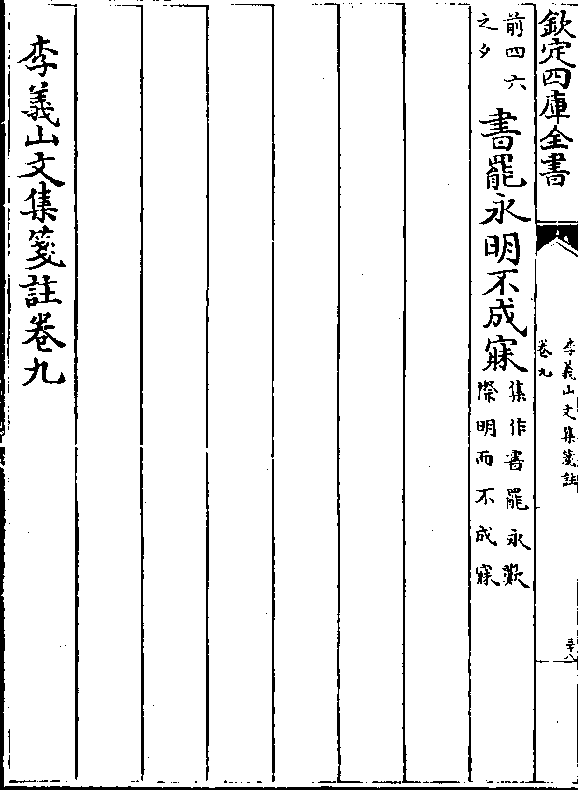 欽定四庫全書
李義山文集箋註
卷九
三十八
前四六
之夕
書罷永明不成寐
集作書罷永歎
際明而不成寐
李義山文集箋註卷九